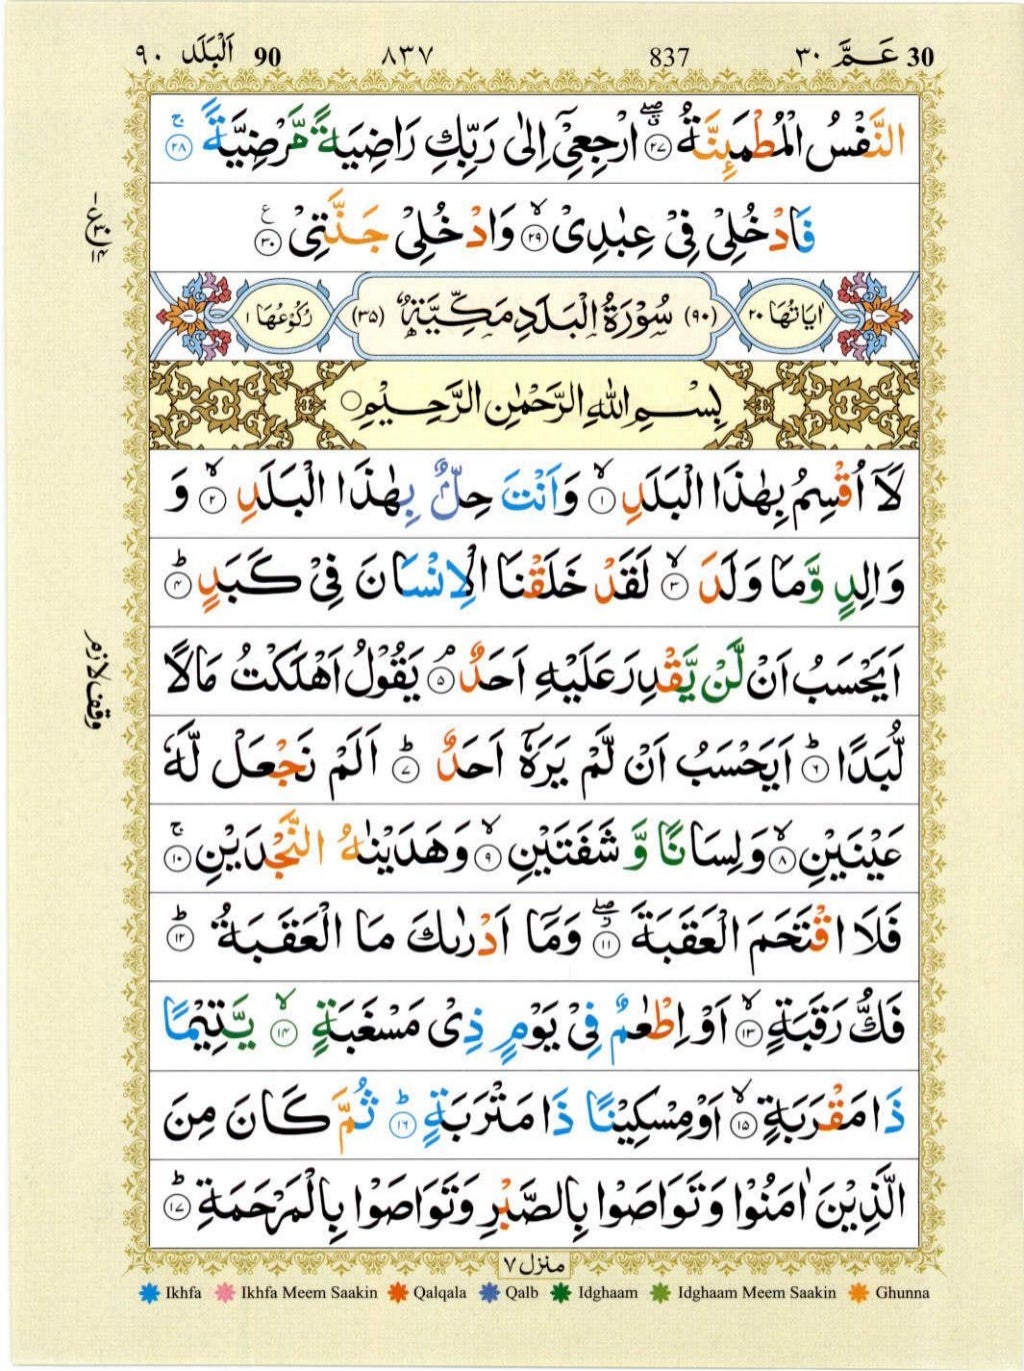 30 عَـمَّ ٣٠ 837 ٨٣٧ 90 اَلْبَلَد ٩٠
النَّفْسُ الْمُطْمَىِٕنَّةُ ۖۗ ٢٧ ارْجِعِیْۤ اِلٰی رَبِّكِ رَاضِیَةً مَّرْضِیَّةً ۚ ٢٨
فَادْخُلِیْ فِیْ عِبٰدِیْ ۙ ٢٩ وَادْخُلِیْ جَنَّتِیْ ٣٠ ع
اٰیَاتُهَا ٢٠ (٩٠) سُوْرَةُ الْبَلَدِ مَكِّیَّةٌ (٣٥) رُكُوْعُهَا ١
بِسْمِ اللهِ الرَّحْمٰنِ الرَّحِیْمِ
لَاۤ اُقْسِمُ بِهٰذَا الْبَلَدِ ۙ ١ وَاَنْتَ حِلٌّۢ بِهٰذَا الْبَلَدِ ۙ ٢ وَ
وَالِدٍ وَّمَا وَلَدَ ۙ ٣ لَقَدْ خَلَقْنَا الْاِنْسَانَ فِیْ كَبَدٍ ؕ ٤
اَیَحْسَبُ اَنْ لَّنْ یَّقْدِرَ عَلَیْهِ اَحَدٌ ۘ ٥ یَقُوْلُ اَهْلَكْتُ مَالًا
وقف لازم
لُّبَدًا ؕ ٦ اَیَحْسَبُ اَنْ لَّمْ یَرَهٗۤ اَحَدٌ ؕ ٧ اَلَمْ نَجْعَلْ لَّهٗ
عَیْنَیْنِ ۙ ٨ وَلِسَانًا وَّ شَفَتَیْنِ ۙ ٩ وَهَدَیْنٰهُ النَّجْدَیْنِ ۚ ١٠
فَلَا اقْتَحَمَ الْعَقَبَةَ ۖؗ ١١ وَمَاۤ اَدْرٰىكَ مَا الْعَقَبَةُ ؕ ١٢
فَكُّ رَقَبَةٍ ۙ ١٣ اَوْ اِطْعٰمٌ فِیْ یَوْمٍ ذِیْ مَسْغَبَةٍ ۙ ١٤ یَّتِیْمًا
ذَا مَقْرَبَةٍ ۙ ١٥ اَوْ مِسْكِیْنًا ذَا مَتْرَبَةٍ ؕ ١٦ ثُمَّ كَانَ مِنَ
الَّذِیْنَ اٰمَنُوْا وَتَوَاصَوْا بِالصَّبْرِ وَتَوَاصَوْا بِالْمَرْحَمَةِ ؕ ١٧
منزل ٧
Ikhfa Ikhfa Meem Saakin Qalqala Qalb Idghaam Idghaam Meem Saakin Ghunna